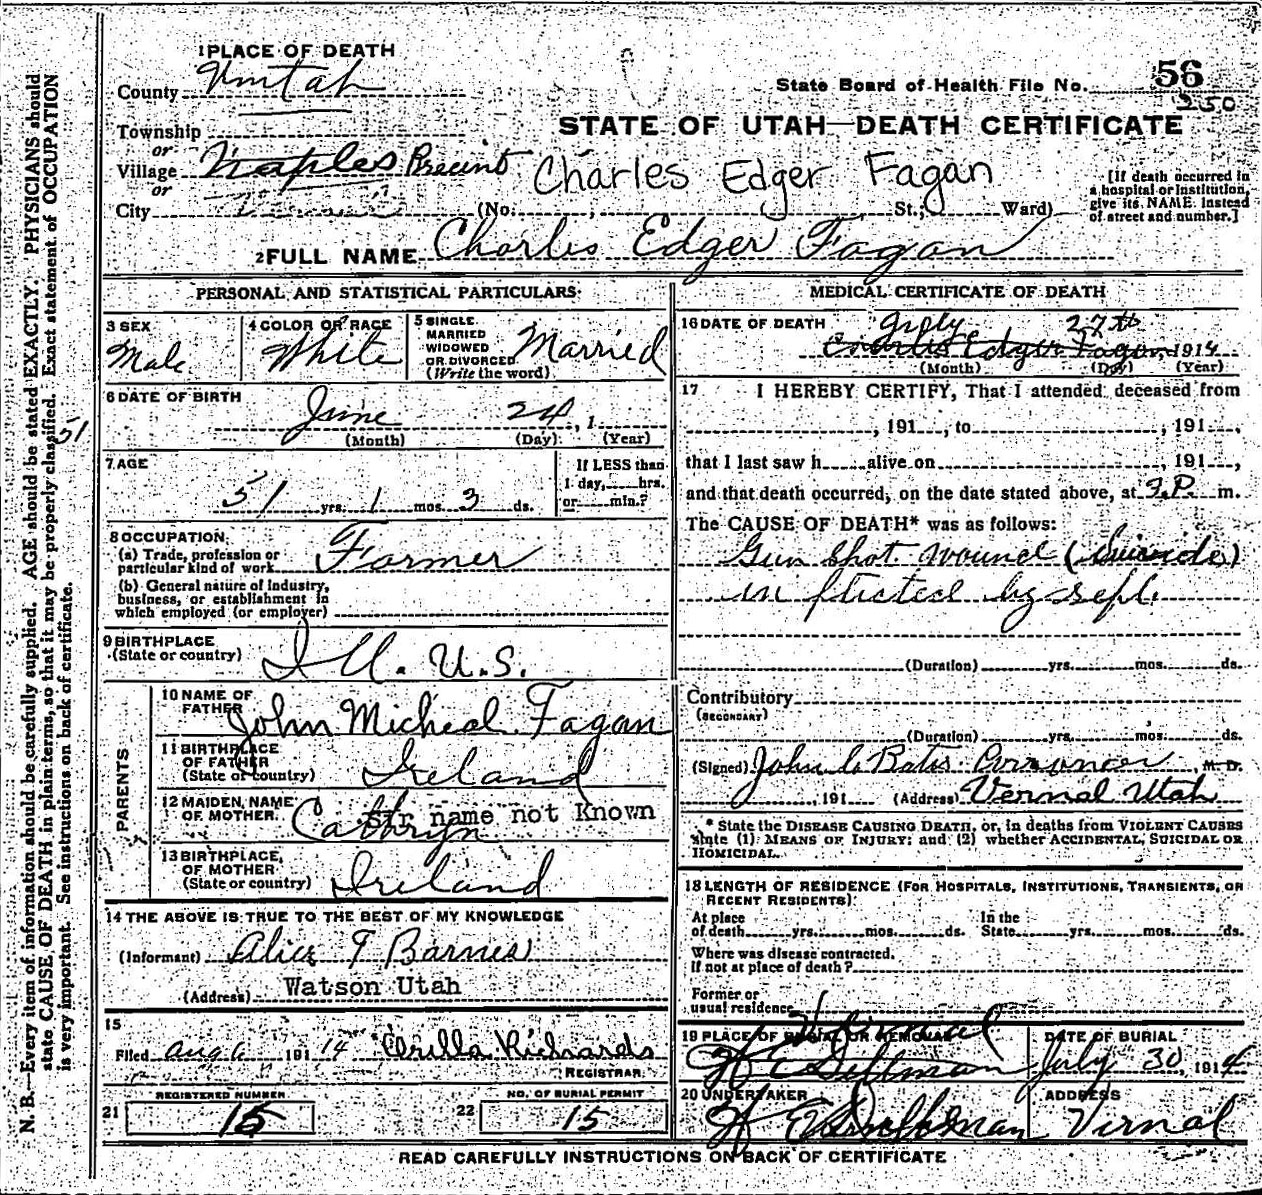 1 PLACE OF DEATH
County Uintah
State Board of Health File No. 56
350
STATE OF UTAH—DEATH CERTIFICATE
Township
or
Village Naples Precint
or
City
Charles Edger Fagan
(No. , St.; Ward)
[If death occurred in
a hospital or institution,
give its NAME instead
of street and number.]
2 FULL NAME Charlis Edger Fagan
PERSONAL AND STATISTICAL PARTICULARS
3 SEX
Male
4 COLOR OR RACE
White
5 SINGLE
MARRIED
WIDOWED
OR DIVORCED
(Write the word)
Married
6 DATE OF BIRTH
June 24, 1
(Month) (Day) (Year)
51
7 AGE
51 yrs. 1 mos. 3 ds.
If LESS than
1 day, hrs.
or min.?
8 OCCUPATION
(a) Trade, profession or
particular kind of work Farmer
(b) General nature of industry,
business, or establishment in
which employed (or employer)
9 BIRTHPLACE
(State or country)
Ill. U.S.
PARENTS
10 NAME OF
FATHER
John Micheal Fagan
11 BIRTHPLACE
OF FATHER
(State or country)
Ireland
12 MAIDEN NAME
OF MOTHER
Cathryn
sir name not Known
13 BIRTHPLACE
OF MOTHER
(State or country)
Ireland
14 THE ABOVE IS TRUE TO THE BEST OF MY KNOWLEDGE
(Informant) Alice F Barnes
(Address) Watson Utah
15
Filed Aug 6 1914 Orilla Richards
REGISTRAR
21
REGISTERED NUMBER
15
22
NO. OF BURIAL PERMIT
15
MEDICAL CERTIFICATE OF DEATH
16 DATE OF DEATH
July 27th
Charlis Edger Fagan 1914
(Month) (Day) (Year)
17 I HEREBY CERTIFY, That I attended deceased from
, 191 , to , 191 ,
that I last saw h alive on , 191 ,
and that death occurred, on the date stated above, at 3.P. m.
The CAUSE OF DEATH* was as follows:
Gun shot wound (Suicide)
in flicted by self.
(Duration) yrs. mos. ds.
Contributory
(SECONDARY)
(Duration) yrs. mos. ds.
(Signed) John C Bates , M. D.
, 191 (Address) Vernal Utah
* State the DISEASE CAUSING DEATH, or, in deaths from VIOLENT CAUSES
state (1) MEANS OF INJURY; and (2) whether ACCIDENTAL, SUICIDAL OR
HOMICIDAL.
18 LENGTH OF RESIDENCE (FOR HOSPITALS, INSTITUTIONS, TRANSIENTS, OR
RECENT RESIDENTS)
At place
of death yrs. mos. ds.
In the
State yrs. mos. ds.
Where was disease contracted,
if not at place of death?
Former or
usual residence
19 PLACE OF BURIAL OR REMOVAL
Vernal
DATE OF BURIAL
July 30, 1914
20 UNDERTAKER
ADDRESS
Vernal
READ CAREFULLY INSTRUCTIONS ON BACK OF CERTIFICATE
N. B.—Every item of information should be carefully supplied. AGE should be stated EXACTLY. PHYSICIANS should
state CAUSE OF DEATH in plain terms, so that it may be properly classified. Exact statement of OCCUPATION
is very important. See instructions on back of certificate.